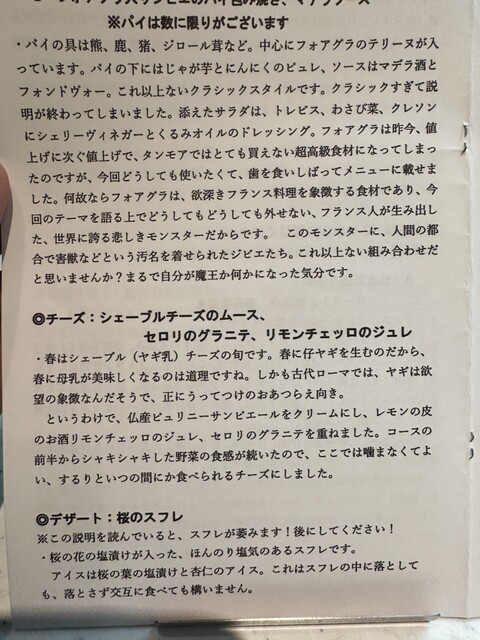 フォアグラ入りジビエのパイ包み焼き、マデラソース
※パイは数に限りがございます
・パイの具は熊、鹿、猪、ジロール茸など。中心にフォアグラのテリーヌが入
っています。パイの下にはじゃが芋とにんにくのピュレ、ソースはマデラ酒と
フォンドヴォー。これ以上ないクラシックスタイルです。クラシックすぎて説
明が終わってしまいました。添えたサラダは、トレビス、わさび菜、クレソン
にシェリーヴィネガーとくるみオイルのドレッシング。フォアグラは昨今、値
上げに次ぐ値上げで、タンモアではとても買えない超高級食材になってしまっ
たのですが、今回どうしても使いたくて、歯を食いしばってメニューに載せまし
た。何故ならフォアグラは、欲深きフランス料理を象徴する食材であり、今
回のテーマを語る上でどうしてもどうしても外せない、フランス人が生み出し
た、世界に誇る悲しきモンスターだからです。 このモンスターに、人間の都
合で害獣などという汚名を着せられたジビエたち。これ以上ない組み合わせだ
と思いませんか？まるで自分が魔王か何かになった気分です。
◎チーズ：シェーブルチーズのムース、
セロリのグラニテ、リモンチェッロのジュレ
・春はシェーブル（ヤギ乳）チーズの旬です。春に仔ヤギを生むのだから、
春に母乳が美味しくなるのは道理ですね。しかも古代ローマでは、ヤギは欲
望の象徴なんだそうで、正にうってつけのおあつらえ向き。
というわけで、仏産ピュリニーサンピエールをクリームにし、レモンの皮
のお酒リモンチェッロのジュレ、セロリのグラニテを重ねました。コースの
前半からシャキシャキした野菜の食感が続いたので、ここでは噛まなくてよ
い、するりといつの間にか食べられるチーズにしました。
◎デザート：桜のスフレ
※この説明を読んでいると、スフレが萎みます！後にしてください！
・桜の花の塩漬けが入った、ほんのり塩気のあるスフレです。
アイスは桜の葉の塩漬けと杏仁のアイス。これはスフレの中に落として
も、落とさず交互に食べても構いません。